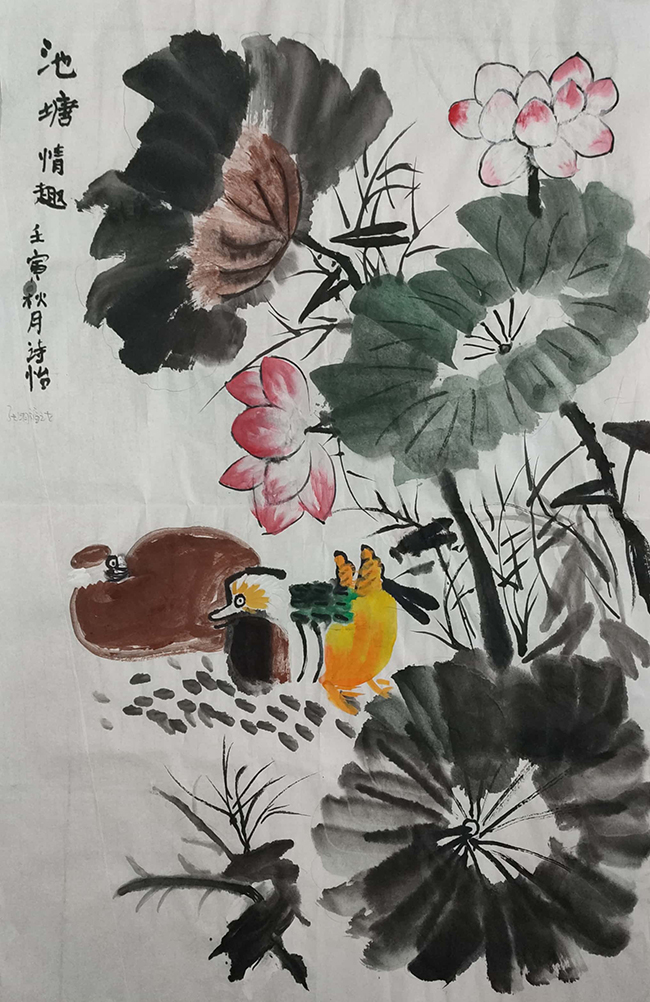 池塘情趣
壬寅秋月诗怡